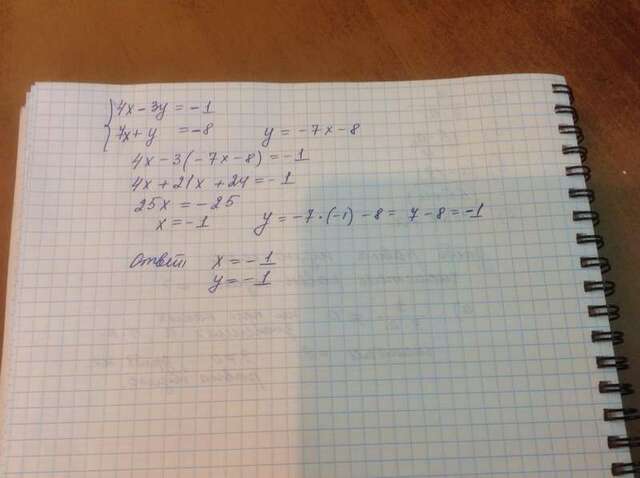 4x - 3y = -1
7x + y = -8 y = -7x - 8
4x - 3(-7x - 8) = -1
4x + 21x + 24 = -1
25x = -25
x = -1 y = -7 · (-1) - 8 = 7 - 8 = -1
Ответ: x = -1
y = -1